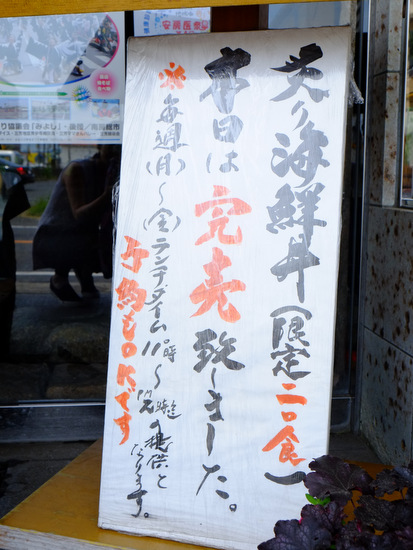 天々海鮮丼(限定二〇食)
本日は完売致しました。
※毎週(月)〜(金)ランチタイム11時〜
の提供となります。
予約もOKです